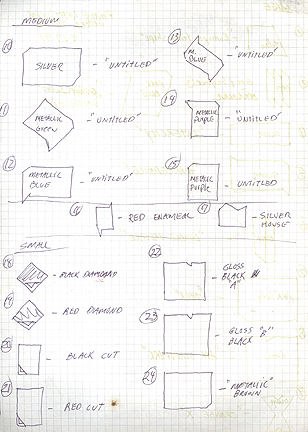 MEDIUM
10 SILVER - "UNTITLED"
11 METALLIC GREEN - "UNTITLED"
12 METALLIC BLUE - "UNTITLED"
13 M. BLUE - "UNTITLED"
14 METALLIC PURPLE - "UNTITLED"
15 METALLIC PURPLE - UNTITLED
16 - RED ENAMEAL
17 - SILVER HOUSE
SMALL
18 - BLACK DIAMOND
19 - RED DIAMOND
20 - BLACK CUT
21 - RED CUT
22 - GLOSS BLACK "A"
23 - GLOSS "B" BLACK
24 - "METALLIC" BROWN